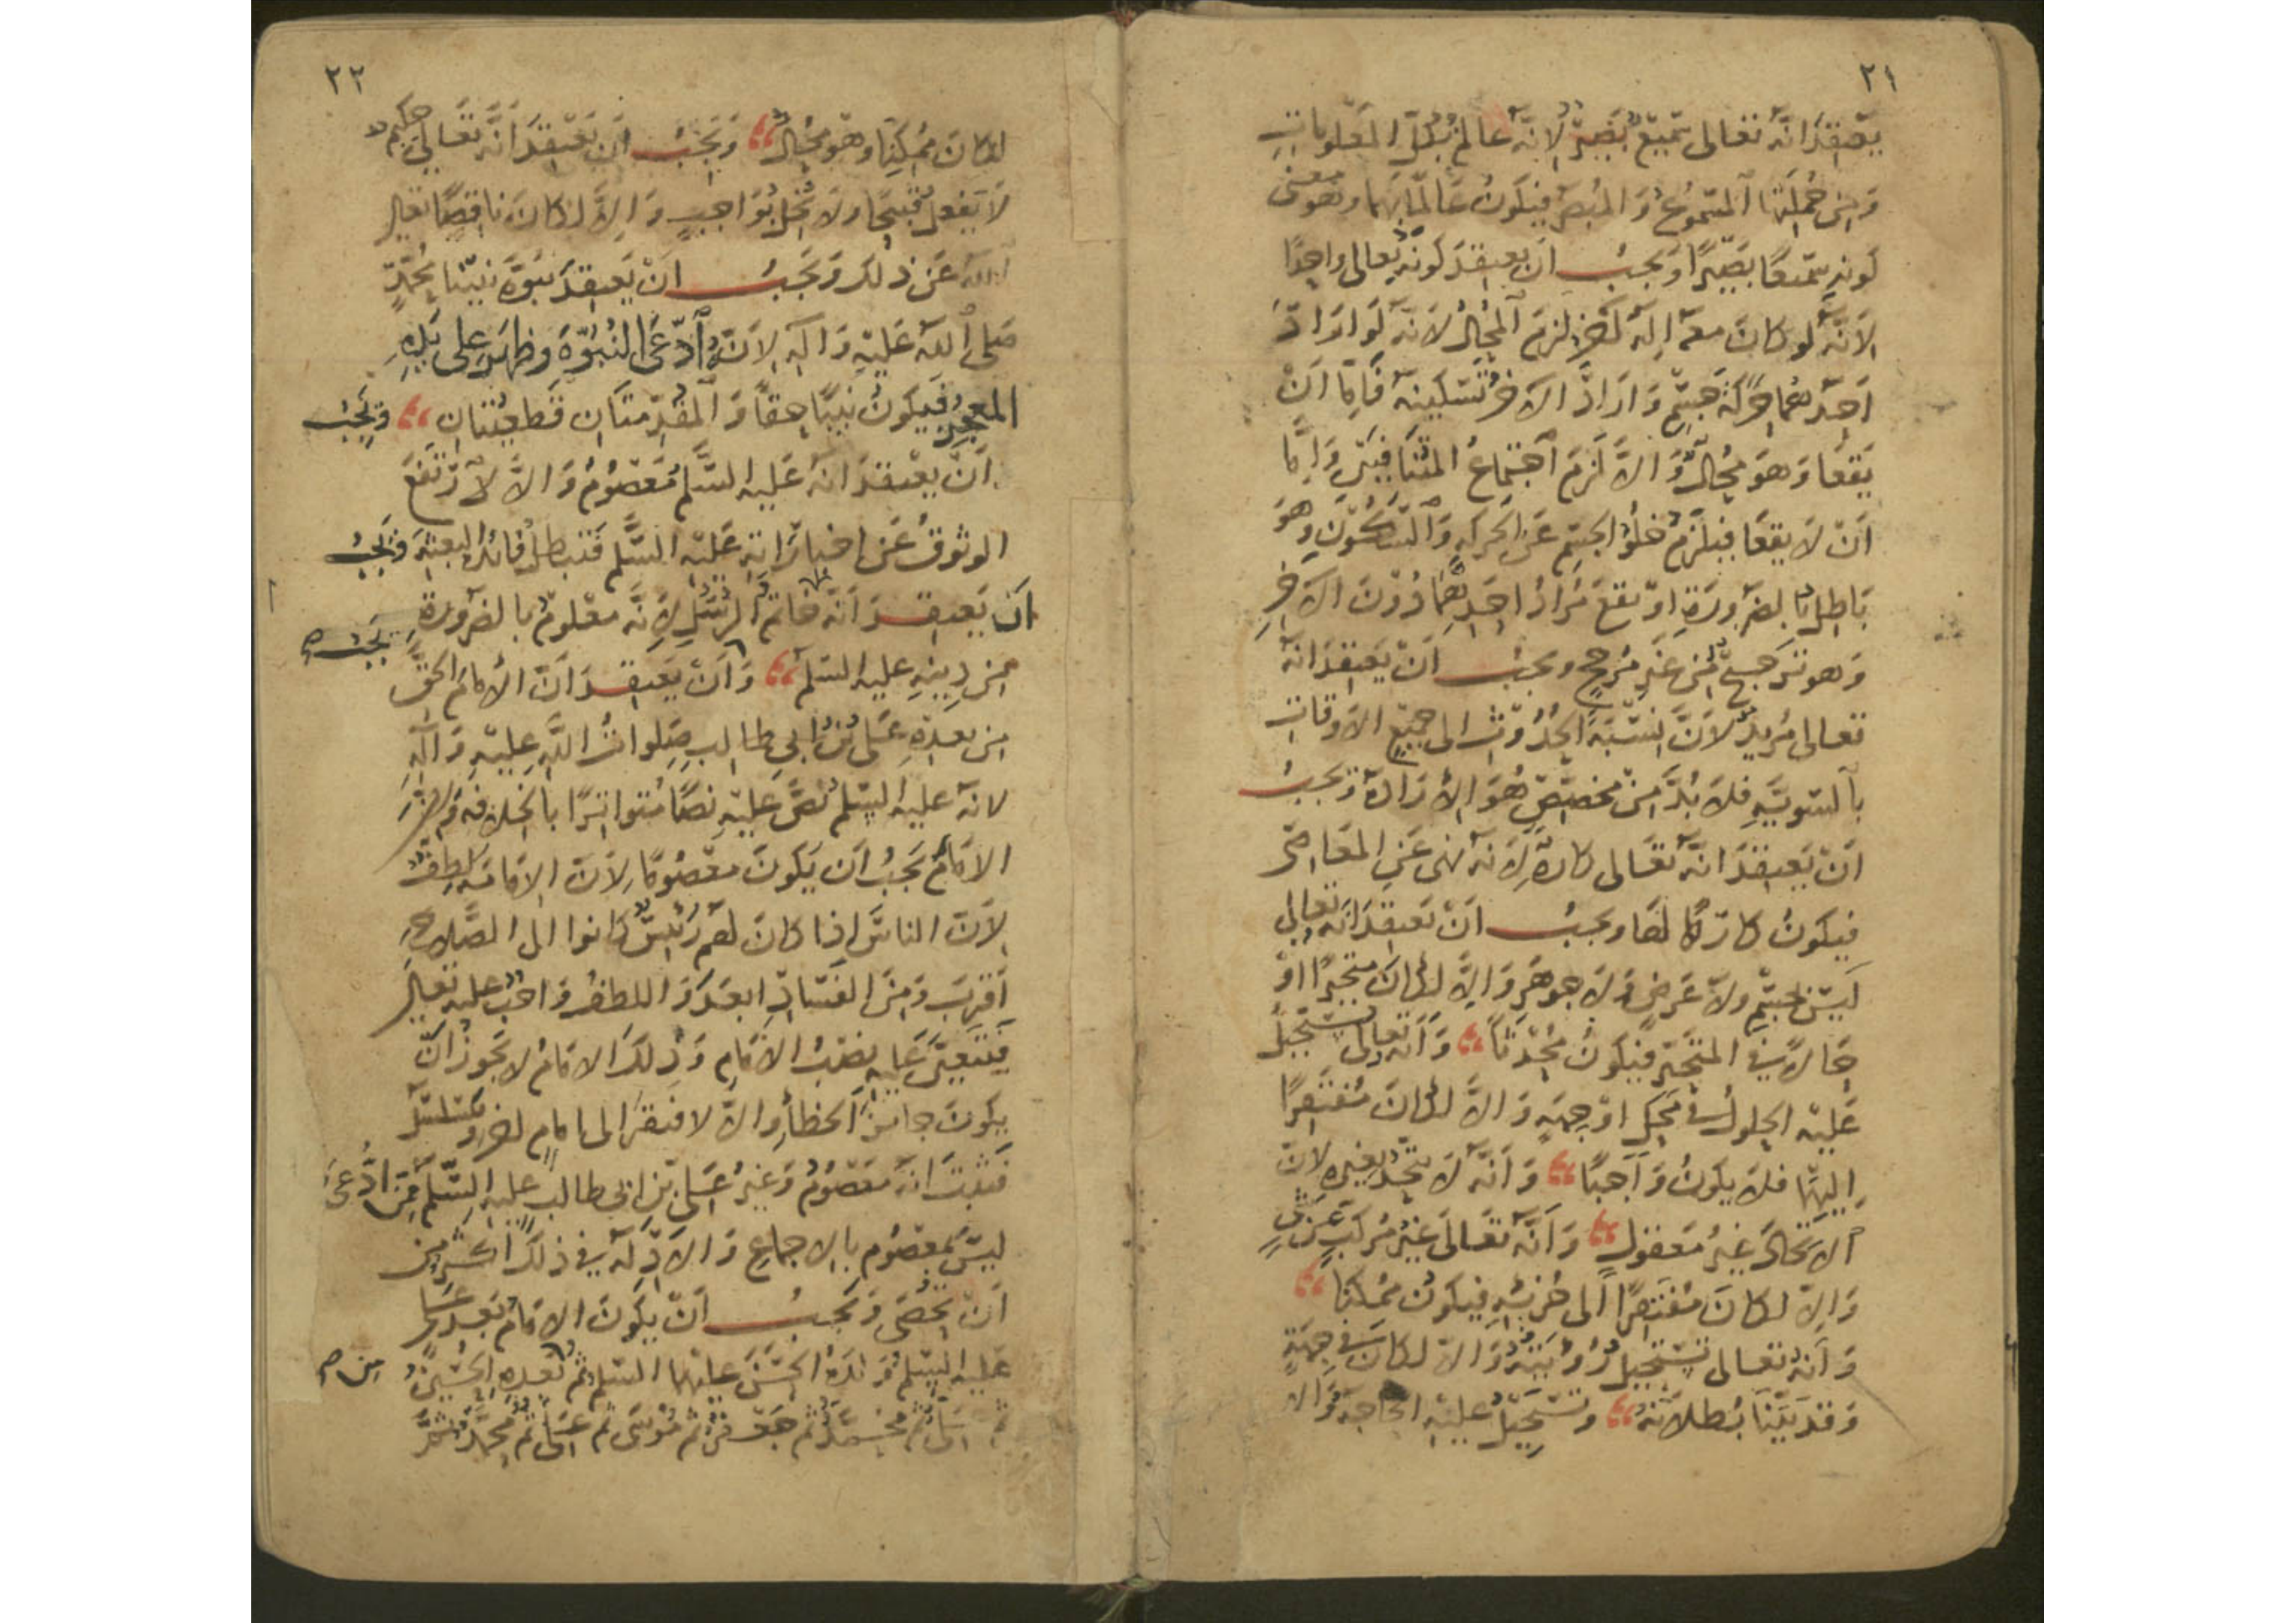 ٢١
يعتقد انه تعالى سميع بصير لانه عالم بكل المعلومات
ومن جملتها المسموع والمبصر فيكون عالما بهما وهو معنى
كونه سميعا بصيرا ويجب ان يعتقد كونه تعالى واحدا
لانه لو كان معه اله اخر لزم المحال لانه لو اراد
احدهما حركة جسم واراد الاخر تسكينه فاما ان
يقعا وهو محال والا لزم اجتماع المتنافيين واما
ان لا يقعا فيلزم خلو الجسم عن الحركة والسكون وهو
باطل بالضرورة او يقع مراد احدهما دون الاخر
وهو ترجيح من غير مرجح ويجب ان يعتقد انه
تعالى مريد لان نسبة الحدوث الى جميع الاوقات
بالسوية فلا بد من مخصص هو الارادة ويجب
ان يعتقد انه تعالى كاره لانه نهى عن المعاصي
فيكون كارها لها ويجب ان يعتقد انه تعالى
ليس بجسم ولا عرض ولا جوهر والا لكان متحيزا او
حالا في المتحيز فيكون محدثا وانه تعالى يستحيل
عليه الحلول في محل او جهة والا لكان مفتقرا
اليهما فلا يكون واجبا وانه لا يتحد بغيره لان
الاتحاد غير معقول وانه تعالى غير مركب عن شيء
والا لكان مفتقرا الى جزئه فيكون ممكنا
وانه تعالى تستحيل رؤيته والا لكان في جهة
وقد بينا بطلانه وتستحيل عليه الحاجة والا
٢٢
لكان ممكنا وهو محال ويجب ان يعتقد انه تعالى حكيم
لا يفعل قبيحا ولا يخل بواجب والا لكان ناقصا تعالى
الله عن ذلك ويجب ان يعتقد نبوة نبينا محمد
صلى الله عليه واله لانه ادعى النبوة وظهر على يده
المعجز فيكون نبيا حقا والمقدمتان قطعيتان ويجب
ان يعتقد انه عليه السلم معصوم والا لارتفع
الوثوق عن اخباراته عليه السلم فتبطل فائدة البعثة ويجب
ان يعتقد انه خاتم الرسل لانه معلوم بالضرورة
من دينه عليه السلم وان يعتقد ان الامام الحق
يجب صح
من بعده على بن ابى طالب صلوات الله عليه واله
لانه عليه السلم نص عليه نصا متواترا بالخلافة ولان
الامام يجب ان يكون معصوما لان الامامة لطف
لان الناس اذا كان لهم رئيس كانوا الى الصلاح
اقرب ومن الفساد ابعد واللطف واجب عليه تعالى
فيتعين عليه نصب الامام وذلك الامام لا يجوز ان
يكون جائز الخطأ والا لافتقر الى امام اخر وتسلسل
فثبت انه معصوم وغير على بن ابى طالب عليه السلم ممن ادعى
ليس بمعصوم بالاجماع والادلة في ذلك اكثر من
ان تحصى ويجب ان يكون الامام بعد على
عليه السلم ولده الحسن عليهما السلم ثم بعده الحسين
من صح
ثم على ثم محمد ثم جعفر ثم موسى ثم على ثم محمد ثم